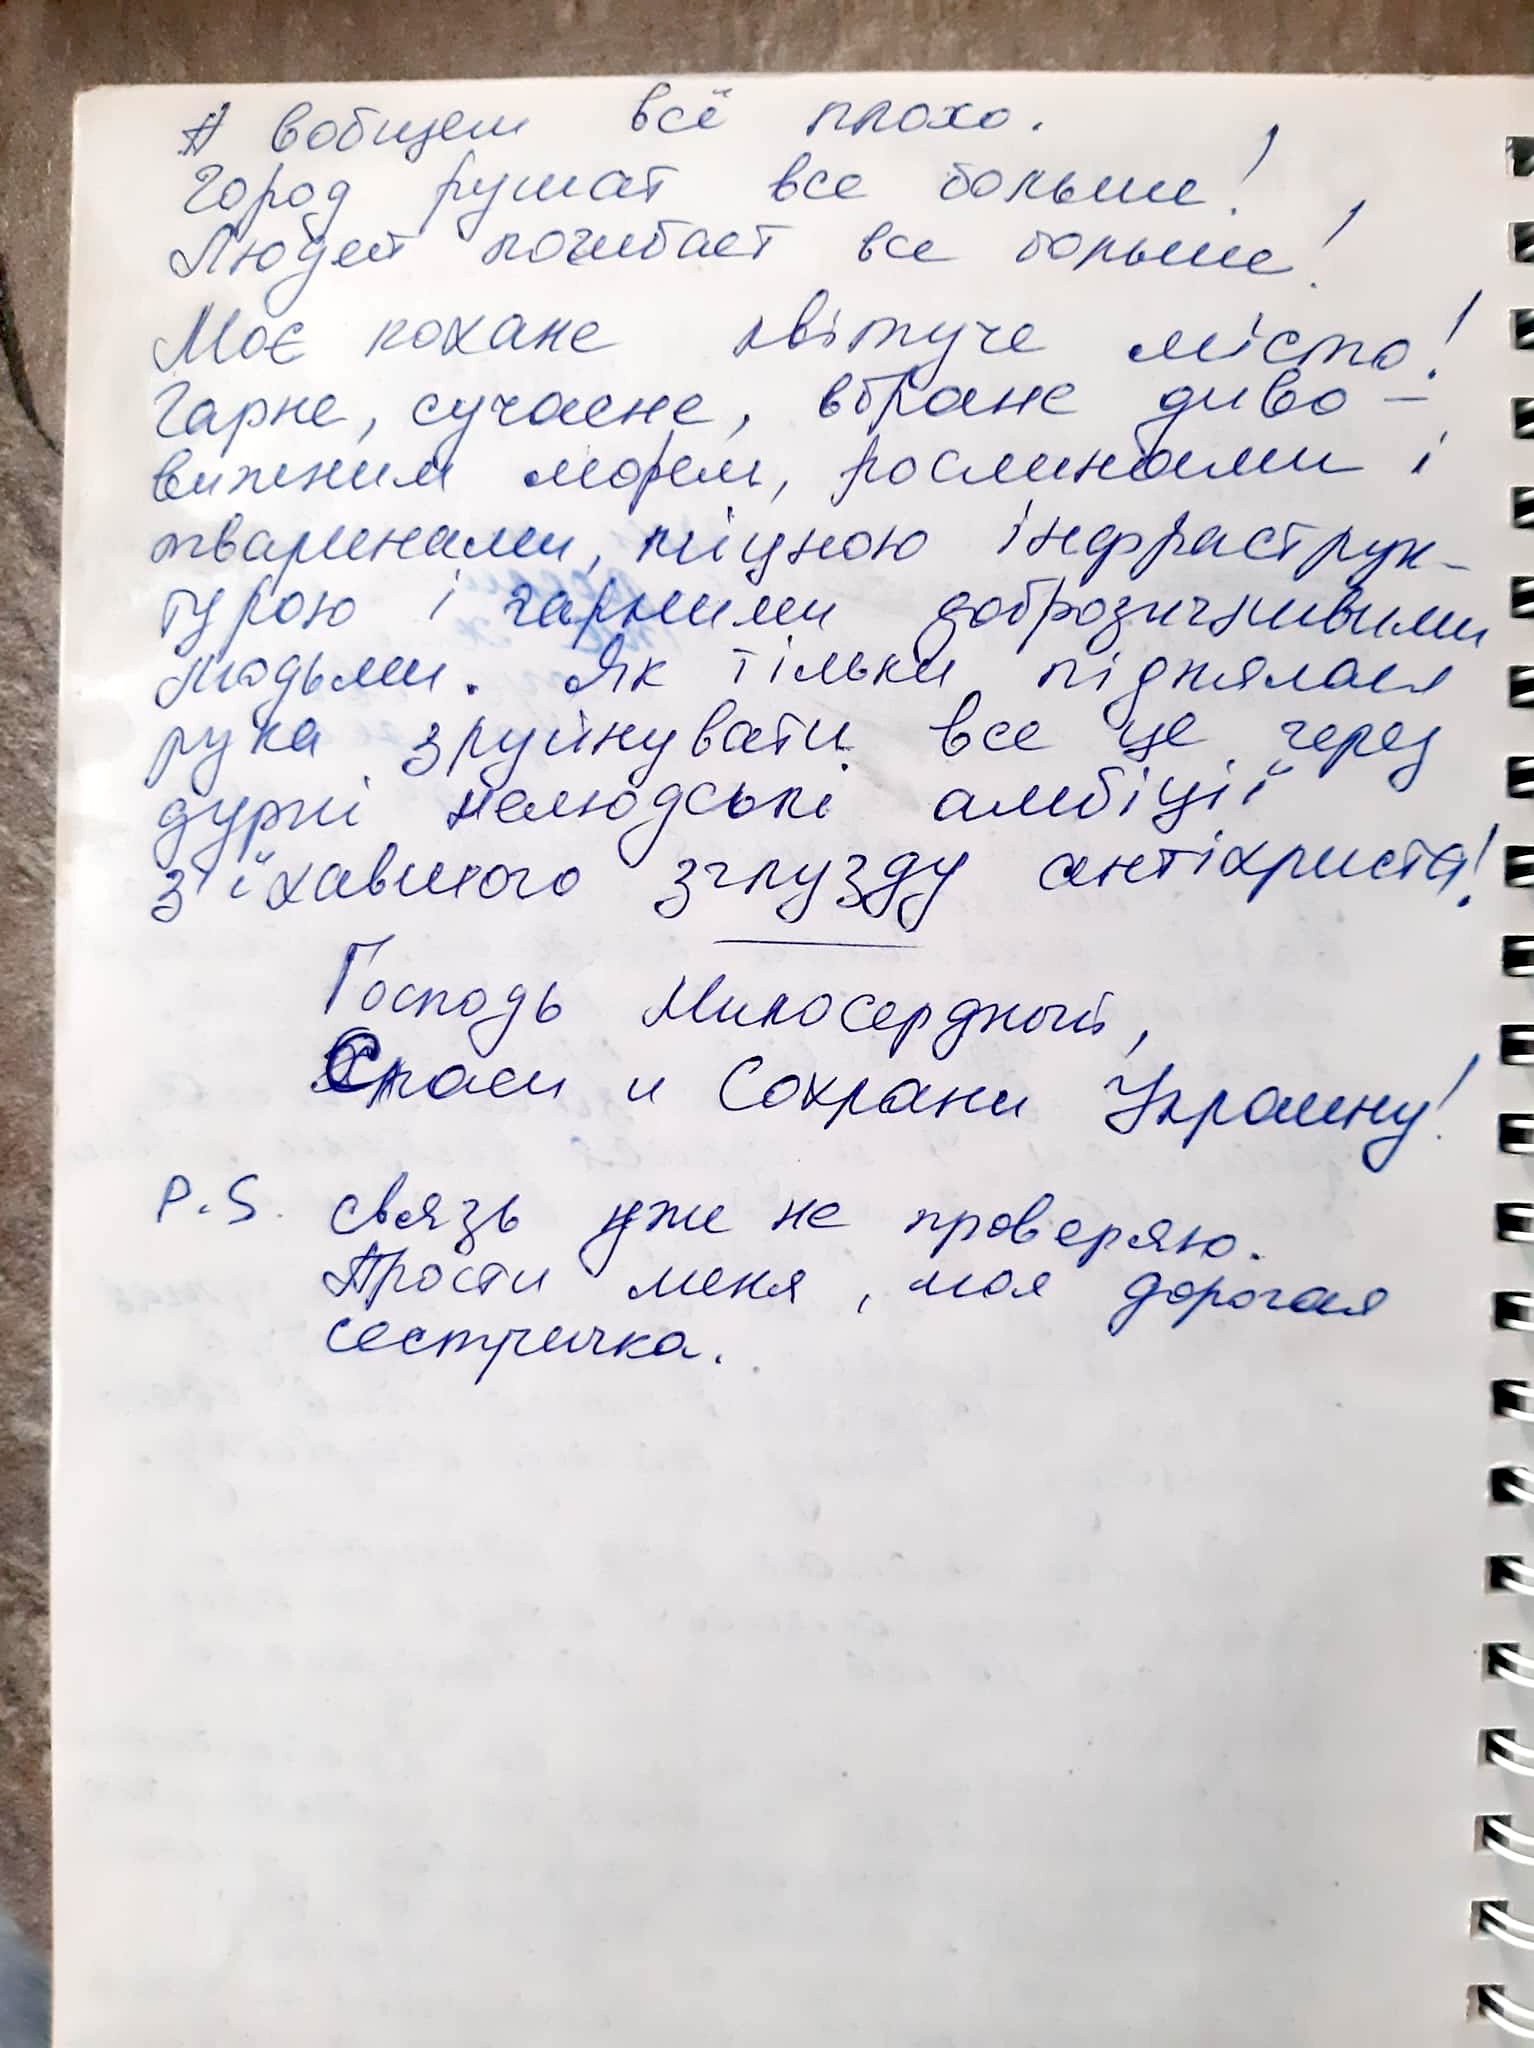 А вобщем всё плохо.
Город рушат все больше!
Людей погибает все больше!
Моє кохане квітуче місто!
Гарне, сучасне, вбране диво-
вижним морем, рослинами і
тваринами, міцною інфраструк-
турою і гарними доброзичливими
людьми. Як тільки піднялася
рука зруйнувати все це через
дурні нелюдські амбіції
з'їхавшого зглузду антіхриста!
Господь Милосердный,
Спаси и Сохрани Украину!
P.S. связь уже не проверяю.
Прости меня, моя дорогая
сестричка.